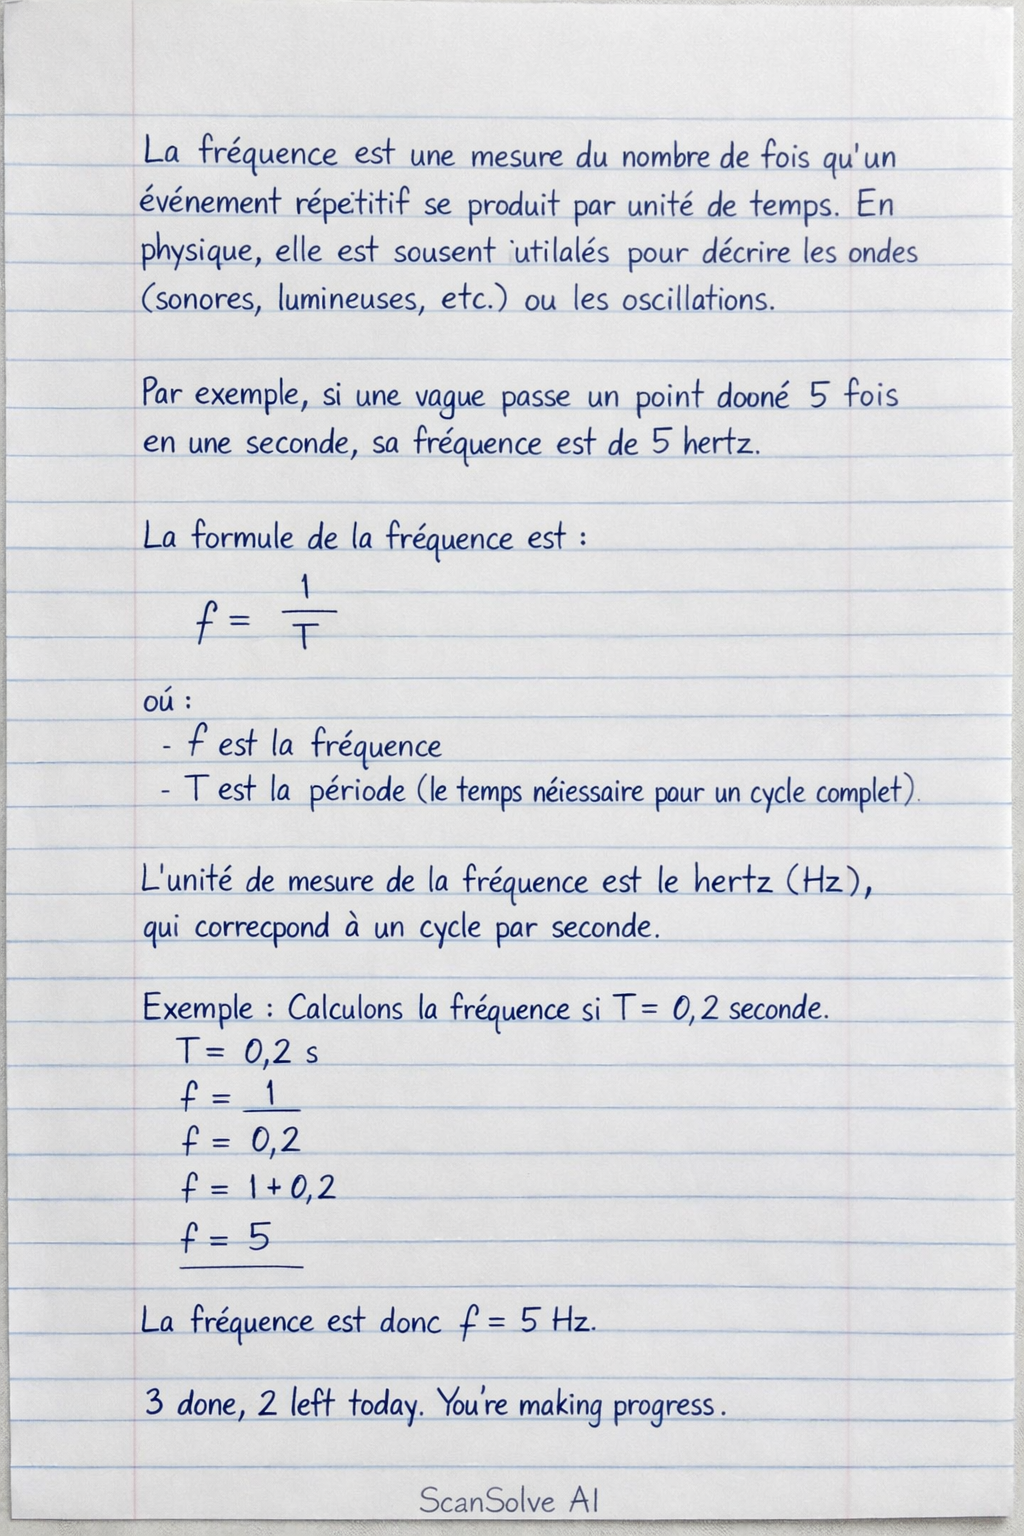 La fréquence est une mesure du nombre de fois qu'un
événement répetitif se produit par unité de temps. En
physique, elle est sousent utilalés pour décrire les ondes
(sonores, lumineuses, etc.) ou les oscillations.
Par exemple, si une vague passe un point dooné 5 fois
en une seconde, sa fréquence est de 5 hertz.
La formule de la fréquence est :
f = 1/T
oú :
- f est la fréquence
- T est la période (le temps néiessaire pour un cycle complet).
L'unité de mesure de la fréquence est le hertz (Hz),
qui correcpond à un cycle par seconde.
Exemple : Calculons la fréquence si T = 0,2 seconde.
T = 0,2 s
f = 1
f = 0,2
f = 1 + 0,2
f = 5
La fréquence est donc f = 5 Hz.
3 done, 2 left today. You're making progress.
ScanSolve AI